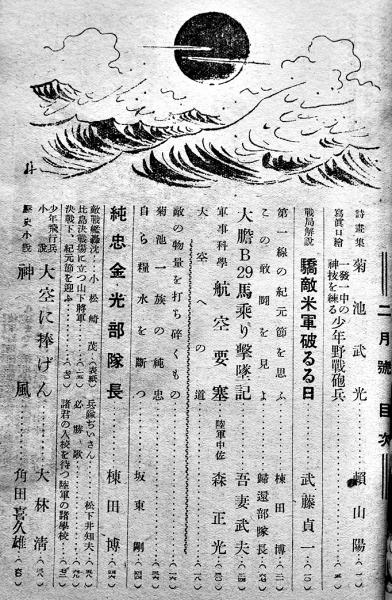 二月號目次
詩畫集 菊池武光 賴山陽
寫眞口繪 一發一中の神技を練る 少年野戰砲兵
戰局解說 驕敵米軍破るる日 武藤貞一
第一線の紀元節を思ふ 棟田博
この敢鬪を見よ 歸還部隊長
大膽B29馬乘り擊隊記 吾妻武夫
軍事科學 航空要塞 陸軍中佐 森正光
大空への道
敵の物量を打ち碎くもの
菊池一族の純忠
自ら糧水を斷つ 坂東剛
純忠金光部隊長 棟田博
敵戰艦轟沈 小松崎茂(表紙)
比島決戰場に立つ山下將軍
決戰下、紀元節を迎ふ
兵隊ぢいさん 松下井知夫
必勝歌
諸君の入校を待つ陸軍の諸學校
少年飛行兵小說 大空に捧げん 大林清
歷史小說 神風 角田喜久雄